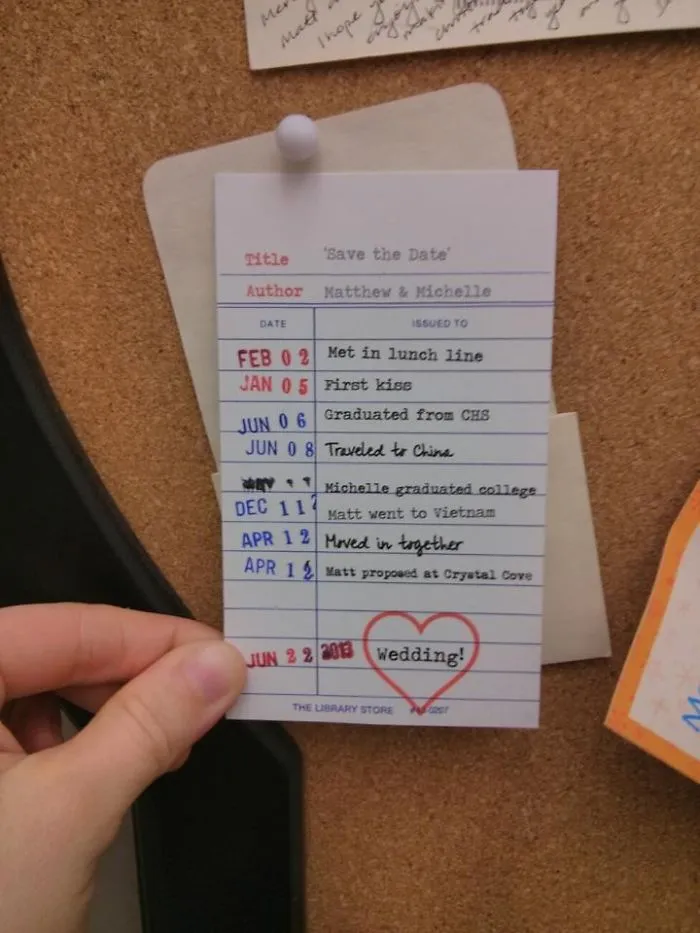 I hope
Title 'Save the Date'
Author Matthew & Michelle
DATE ISSUED TO
FEB 02 Met in lunch line
JAN 05 First kiss
JUN 06 Graduated from CHS
JUN 08 Traveled to China
Michelle graduated college
DEC 11 Matt went to Vietnam
APR 12 Moved in together
APR 12 Matt proposed at Crystal Cove
JUN 22 2013 Wedding!
THE LIBRARY STORE